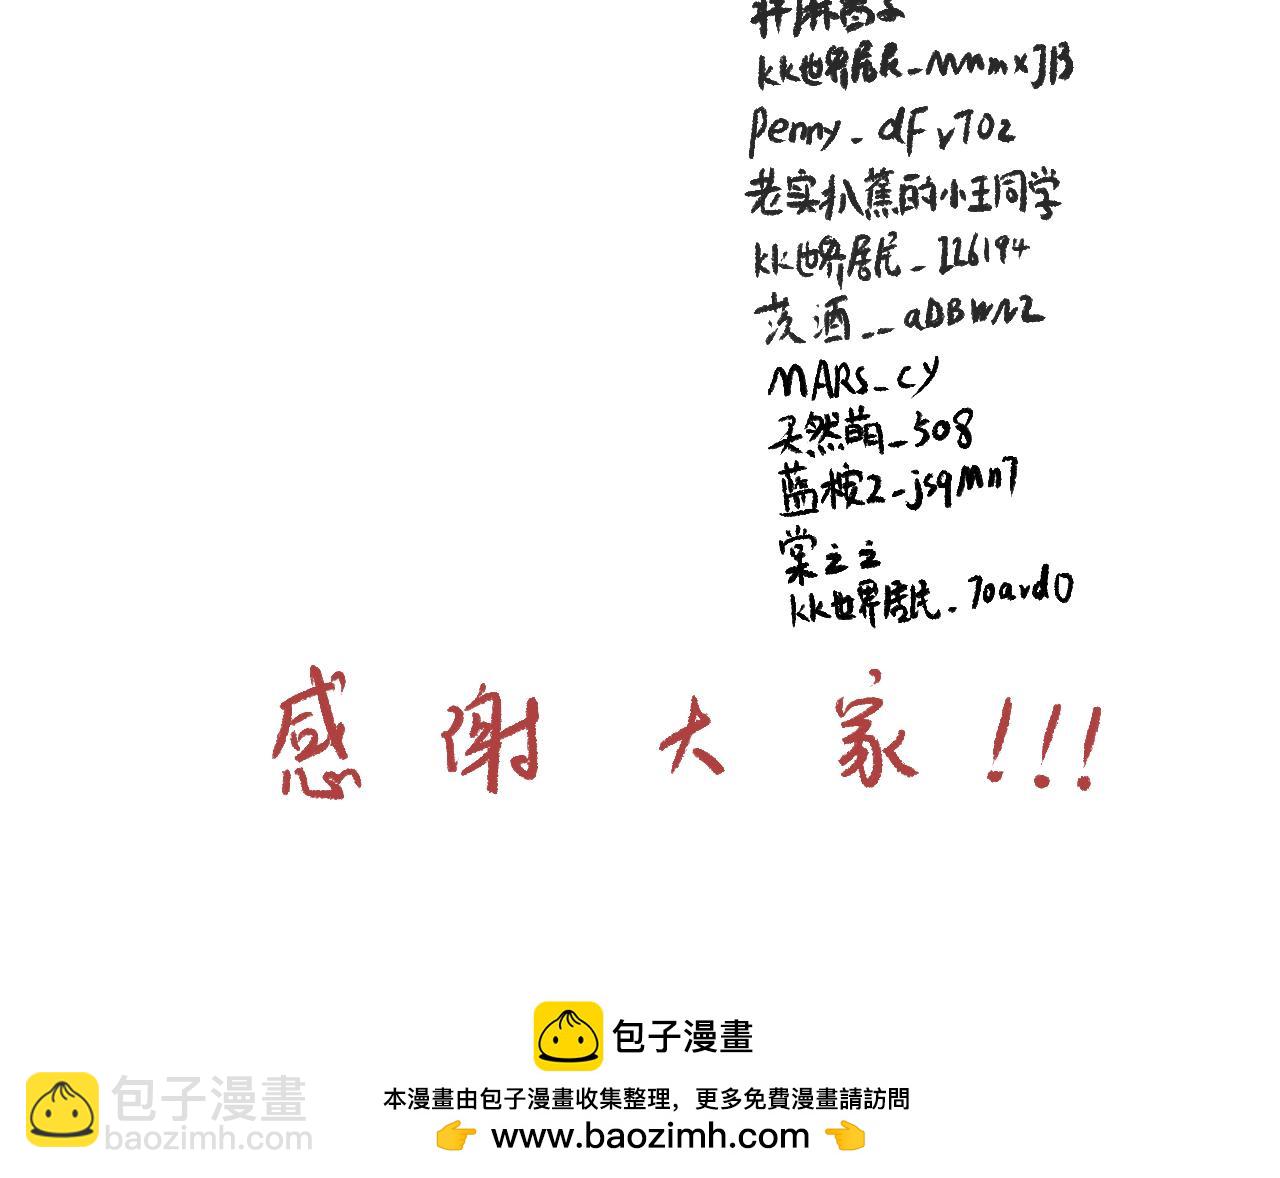 kk世界居民_mnmxJB
Penny_dFv70z
老实扒蕉的小王同学
kk世界居民_226194
茨酒__aDBWN2
MARS_cy
天然萌_508
蓝桉2_jsqMn7
棠之之
kk世界居民_70avd0
感谢大家!!!
包子漫畫
本漫畫由包子漫畫收集整理，更多免費漫畫請訪問
👉 www.baozimh.com 👈
包子漫畫
baozimh.com